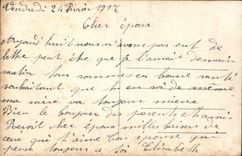 Vendredi 24 Février 1917
Cher époux
Aujourd'huit nous n'avons pas eut de
lettre peut être que je l'aurait demain
matin tous sommes en bonne santé
souhaitant que toi en soi de même
ma mère va toujour mieux
Bien le bonjour des parents
Reçoit cher époux mille baiser de
ceux qui t'aime ton épouse qui
pense toujours a toi Elisabeth